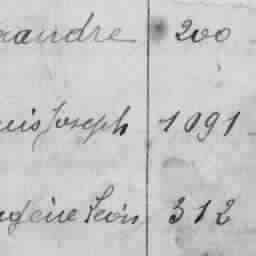 andre 200
uis Joseph 1091
gène Léon 312